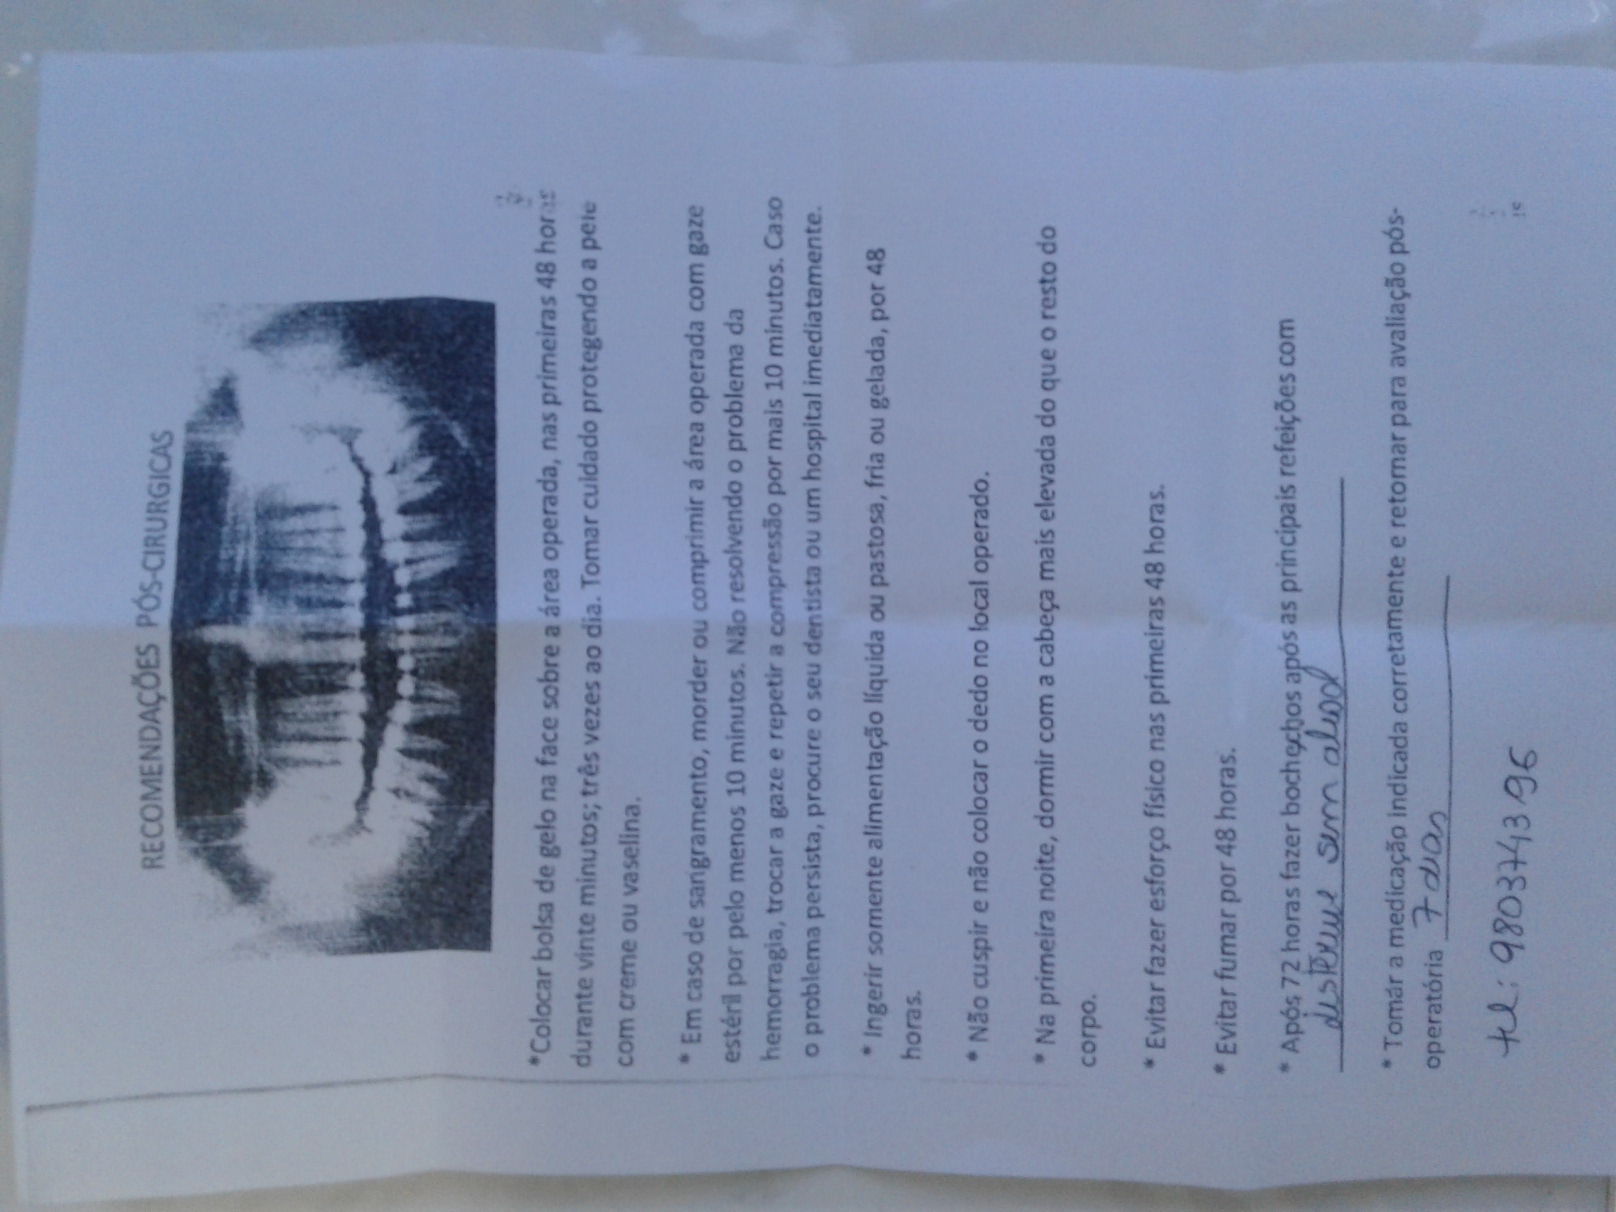 RECOMENDAÇÕES PÓS-CIRURGICAS
*Colocar bolsa de gelo na face sobre a área operada, nas primeiras 48 horas
durante vinte minutos; três vezes ao dia. Tomar cuidado protegendo a pele
com creme ou vaselina.
* Em caso de sangramento, morder ou comprimir a área operada com gaze
estéril por pelo menos 10 minutos. Não resolvendo o problema da
hemorragia, trocar a gaze e repetir a compressão por mais 10 minutos. Caso
o problema persista, procure o seu dentista ou um hospital imediatamente.
* Ingerir somente alimentação líquida ou pastosa, fria ou gelada, por 48
horas.
* Não cuspir e não colocar o dedo no local operado.
* Na primeira noite, dormir com a cabeça mais elevada do que o resto do
corpo.
* Evitar fazer esforço físico nas primeiras 48 horas.
* Evitar fumar por 48 horas.
* Após 72 horas fazer bochechos após as principais refeições com
sem alcool
* Tomar a medicação indicada corretamente e retornar para avaliação pós-
operatória 7 dias
tel: 980374396